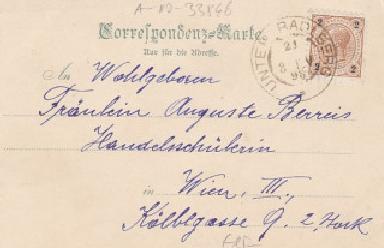 A-117-33846
Correspondenz-Karte.
Nur für die Adresse.
2 2
2 2
UNTER RADLBERG
21
An Wohlgeboren
Fräulein Auguste Berreis
Handelsschülerin
in Wien, III,
Kölblgasse 9. 2. Stock